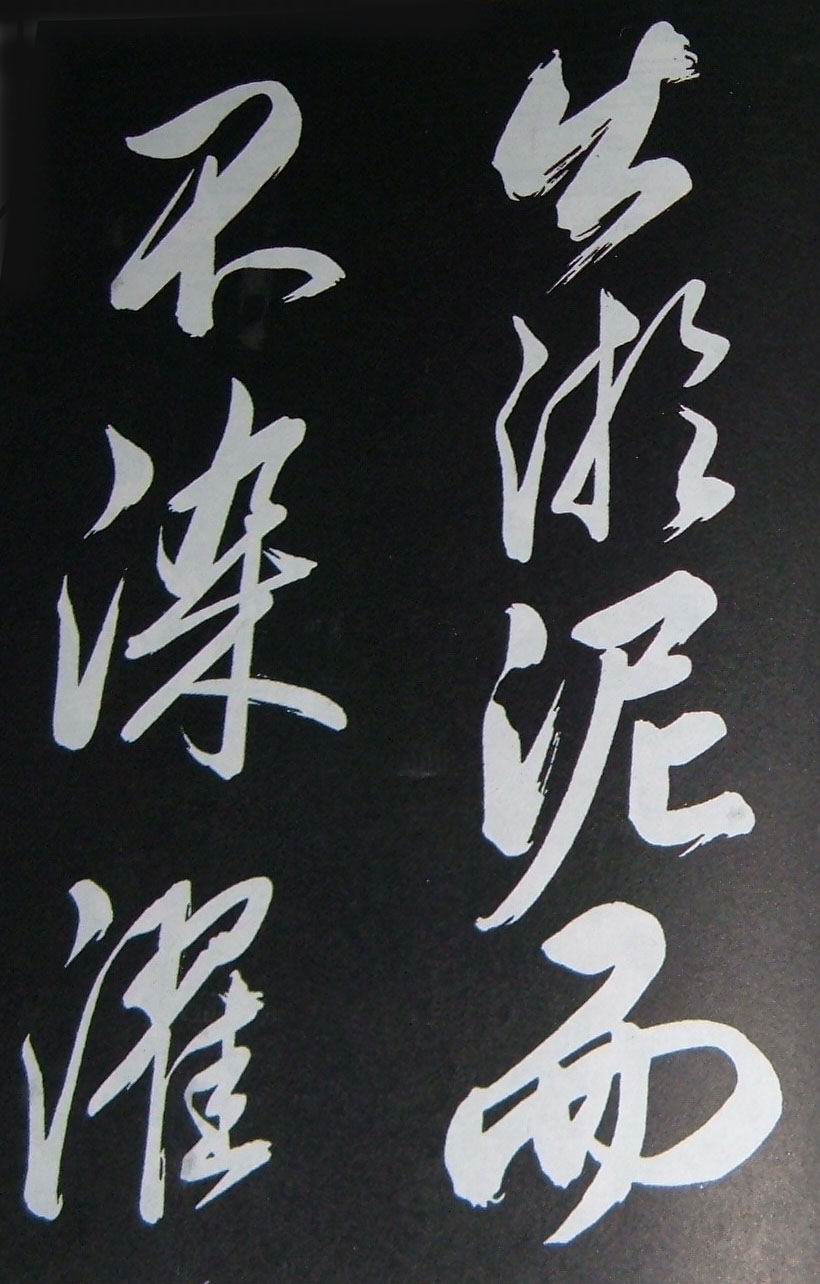 出淤泥而
不染濯